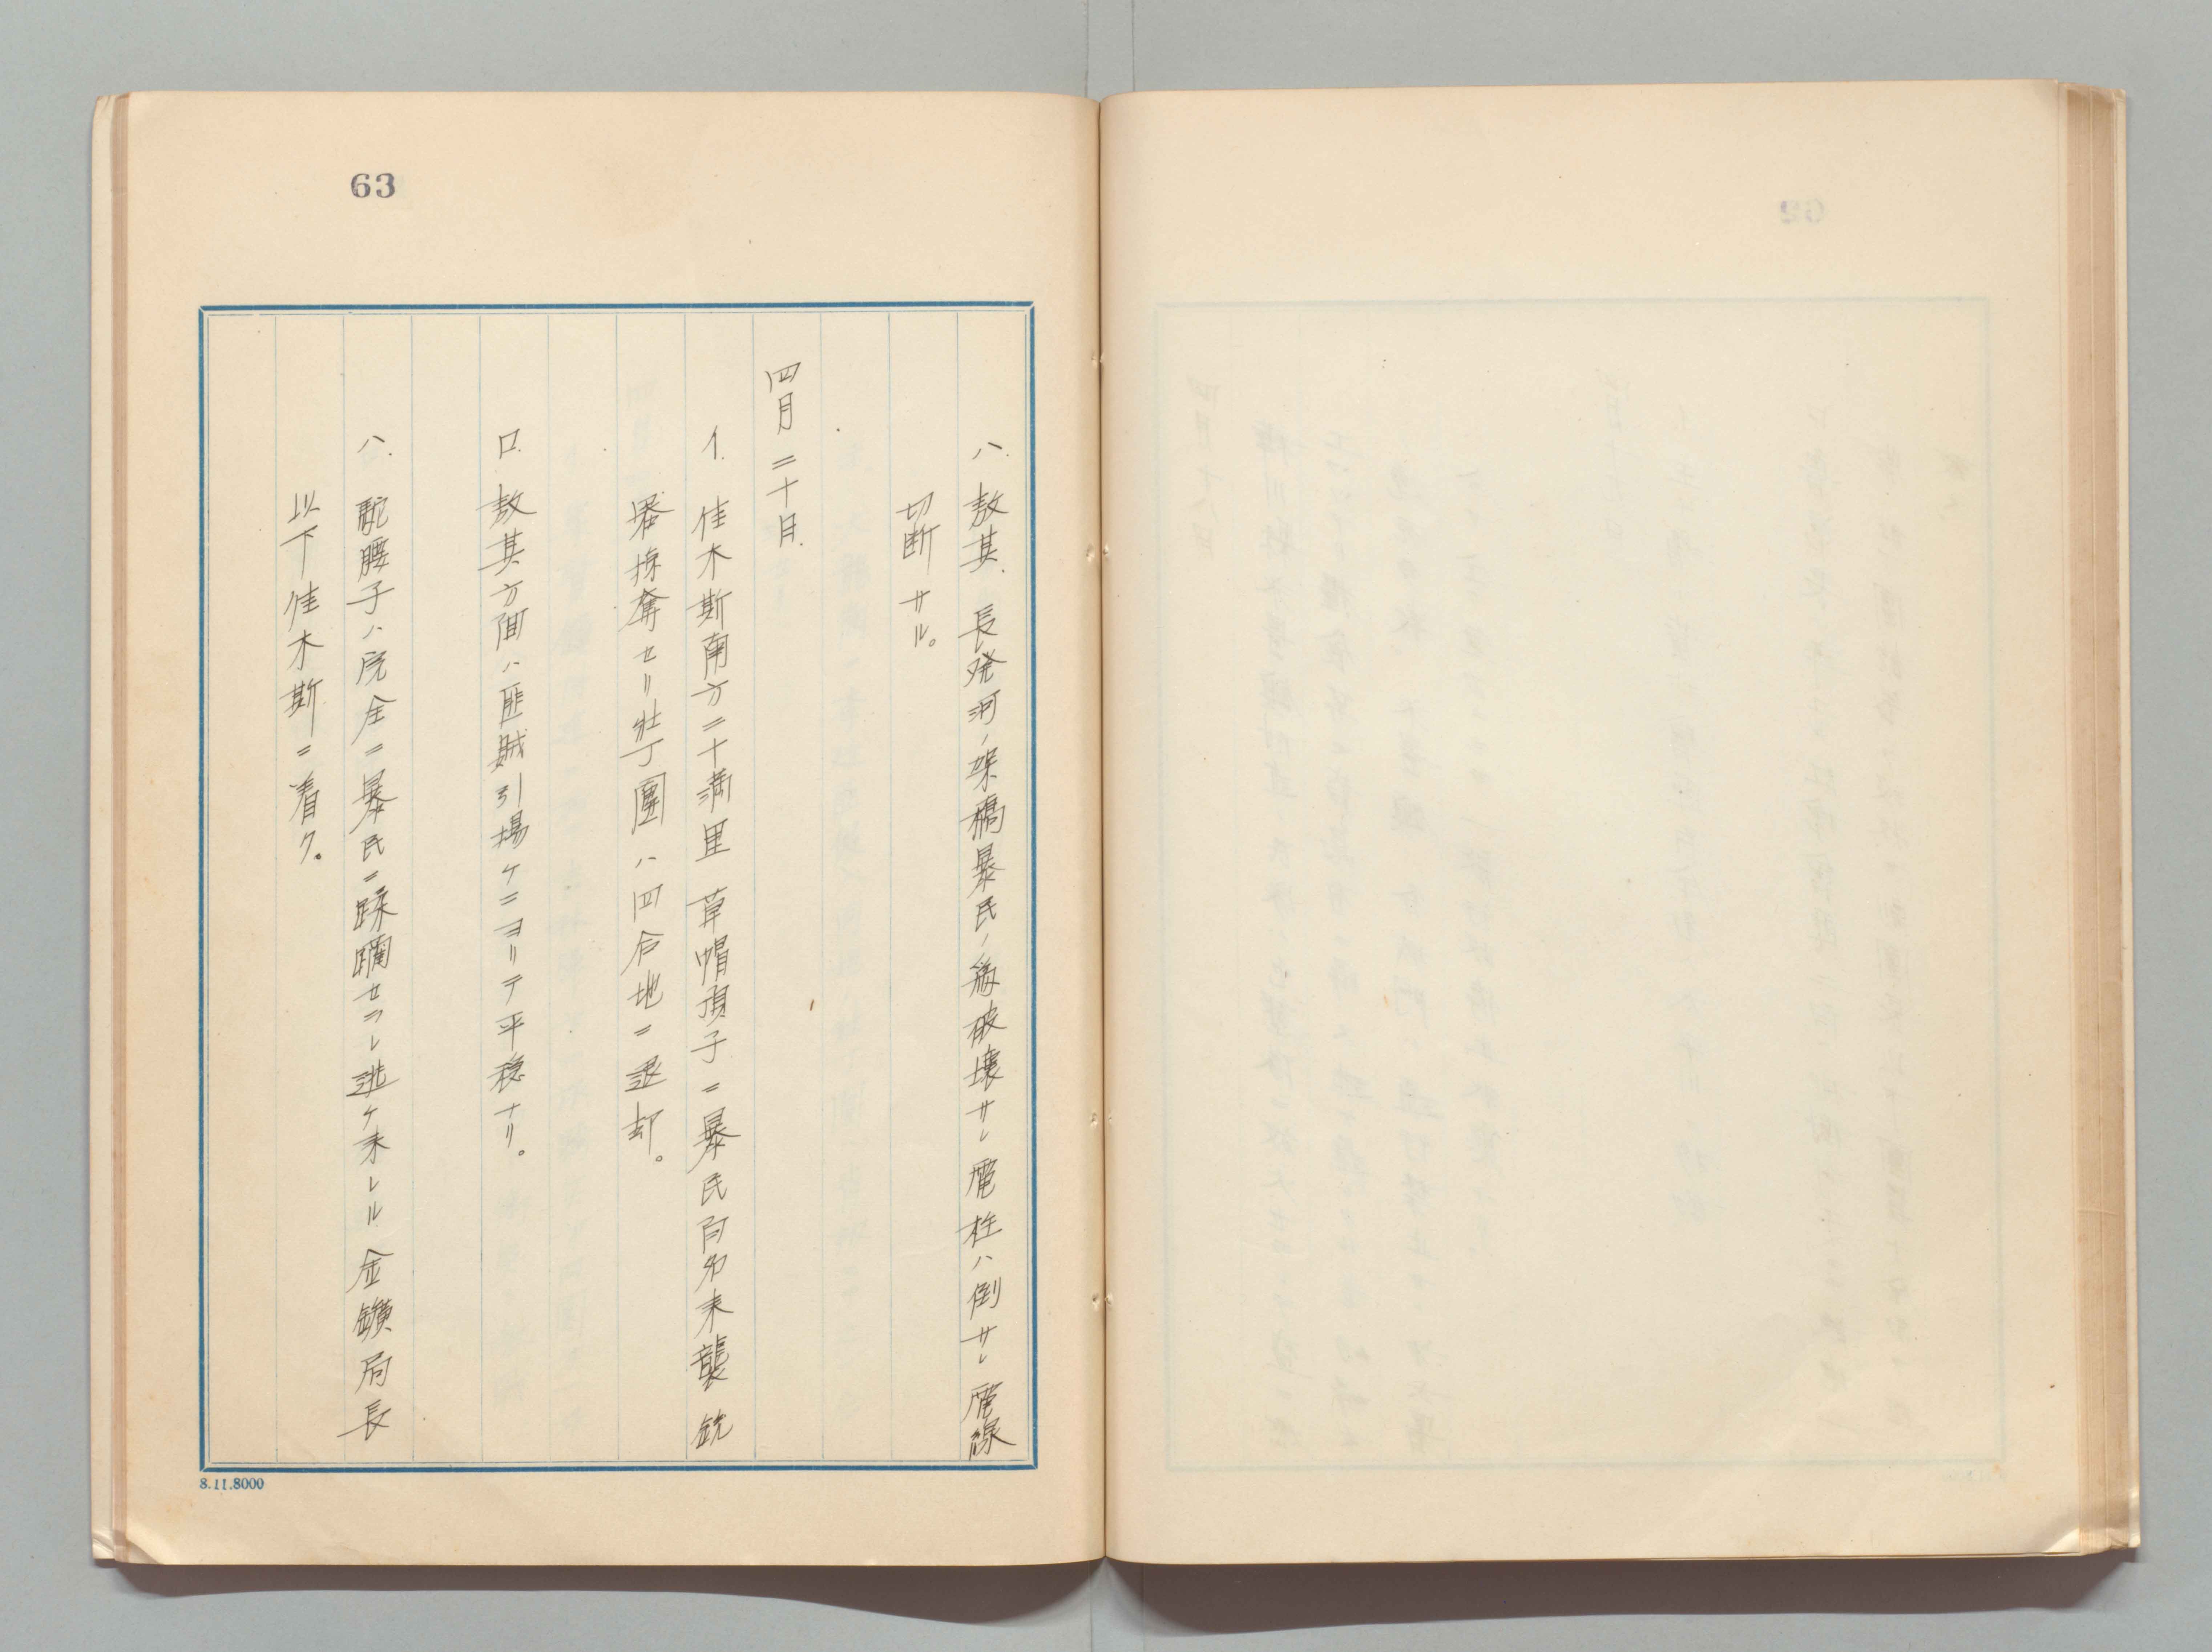 63
ハ、敖其、長発河ノ架橋暴民ノ為破壊サレ電柱ハ倒サレ電線
切断サル。
四月二十日、
イ、佳木斯南方二十満里 草帽頂子ニ暴民百名来襲 銃
器掠奪セリ壮丁團ハ四合地ニ退却。
ロ、敖其方面ハ匪賊引揚ケニヨリテ平穏ナリ。
ハ、駝腰子ハ完全ニ暴民ニ蹂躙セラレ逃ケ来レル金鑛局長
以下佳木斯ニ着ク。
8.11.8000